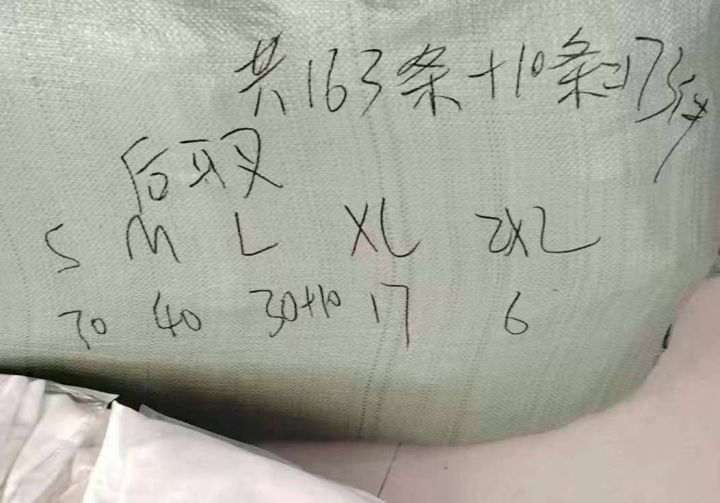 共163条+10条=173条
后
S M L XL 2XL
70 40 30+10 17 6